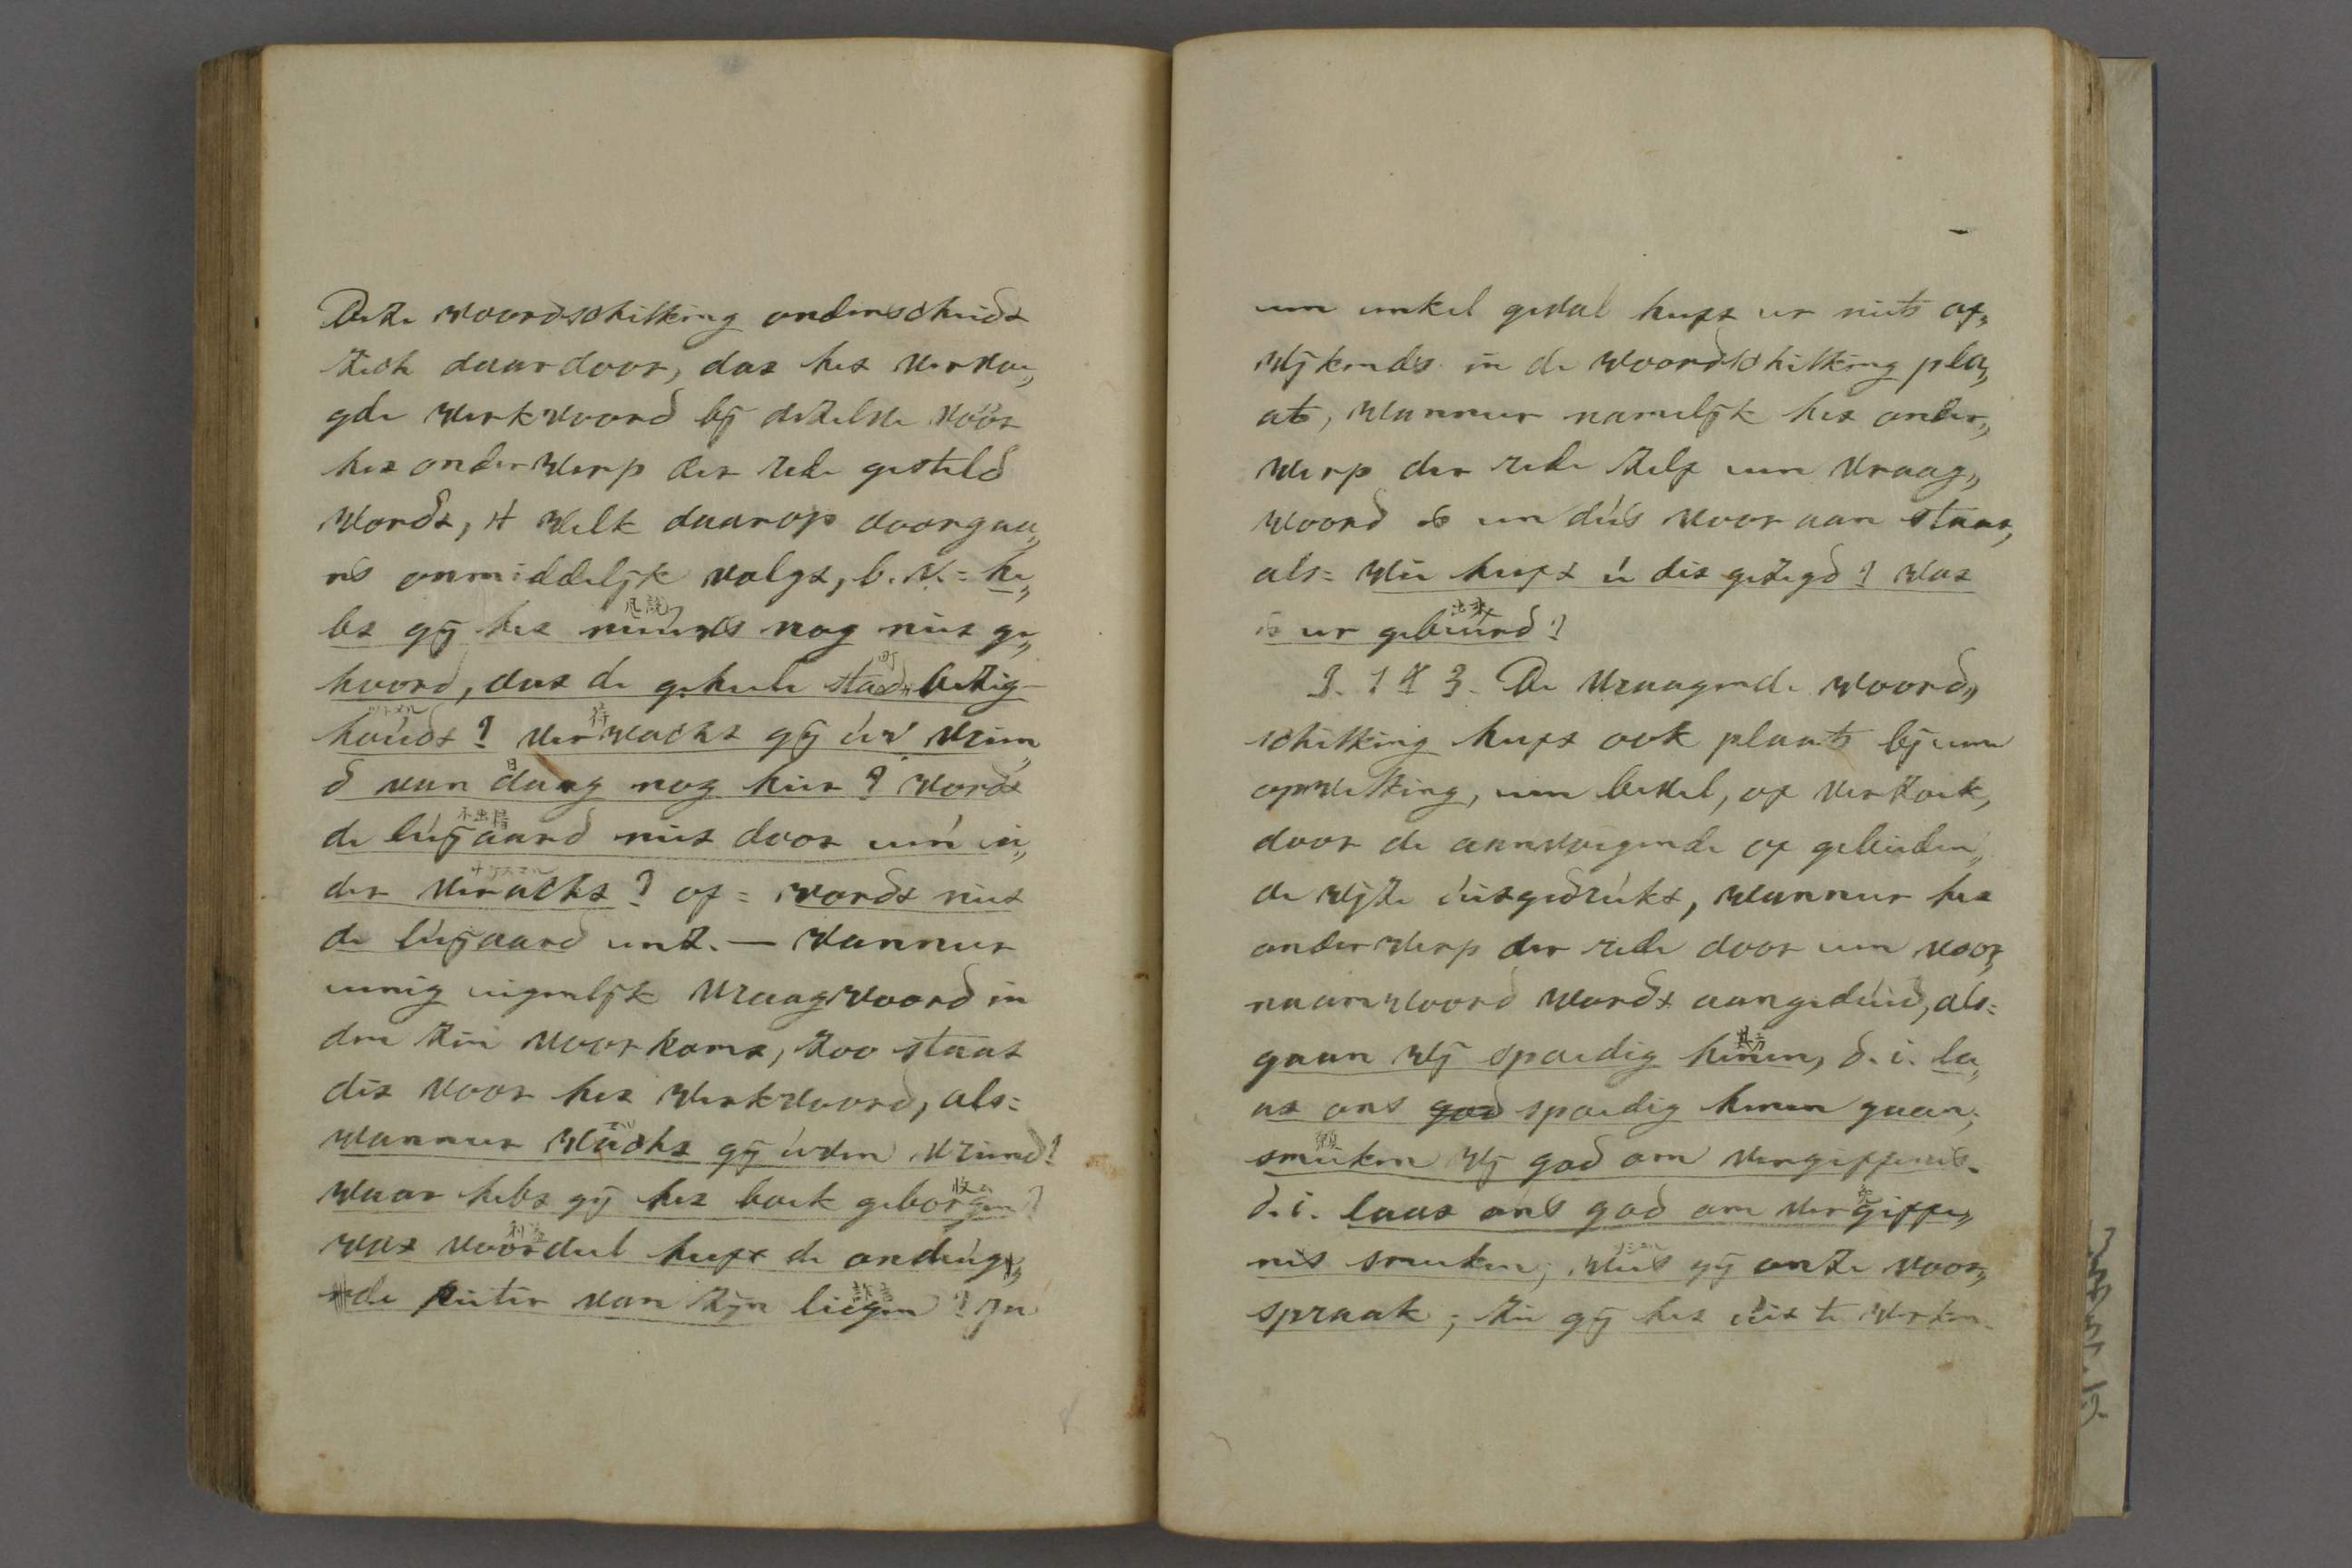 Deze woordschikking onderscheidt
zich daardoor, dat het vervoe„
gde werkwoord bij dezelve vóór
het onderwerp der rede gesteld
wordt, 't welk daarop doorgaa„
ns onmiddelijk volgt, b. v. = he„
bt gij het nieuws nog niet ge„
hoord, dat de geheele stad bezig
houdt? verwacht gij úw vrien„
d van daag nog hier? wordt
de lúijaard niet door een ie„
der veracht? of = wordt niet
de lúijaard enz. — wanneer
eenig eigenlijk vraagwoord in
den zin voorkomt, zoo staat
dit voor het werkwoord, als =
wanneer wacht gij úwen vriend?
waar hebt gij het boek geborgen?
wat voordeel heeft de ondeúge„
nde pieter van zijn liegen? In
een enkel geval heeft er niets af„
wijkends in de woordschikking pla„
ats, wanneer namelijk het onder„
werp der rede zelf een vraag„
woord is en dús voor aan staat,
als = wie heeft ú dit gezegd? wat
is er gebeúrd?
§. 183. De vraagende woord„
schikking heeft ook plaats bij eene
opwekking, een bevel, of verzoek,
door de aanvoegende of gebieden„
de wijze úitgedrúkt, wanneer het
onderwerp der rede door een voor„
naamwoord wordt aangedúid, als =
gaan wij spoedig henen, d. i. la„
at ons spoedig henen gaan;
smeeken wij god om vergiffenis.
d. i. laat ons god om vergiffe„
nis smeeken; wees gij onze voor„
spraak; zie gij het úit te werken.